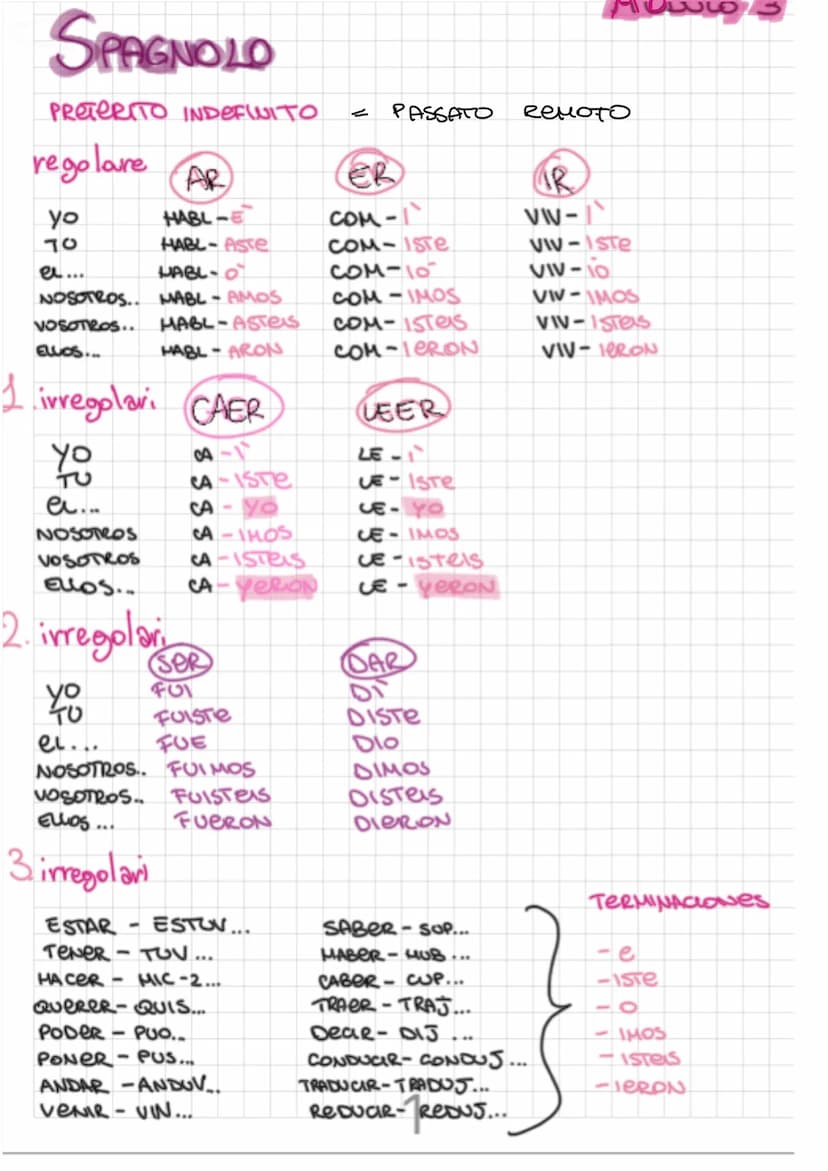 MODULO 3
SPAGNOLO
PRETERITO INDEFINITO = PASSATO REMOTO
regolare AR ER IR
YO HABL-É COM-Ì VIV-Ì
TU HABL-ASTE COM-ISTE VIV-ISTE
EL... HABL-Ò COM-IÒ VIV-IO
NOSOTROS.. HABL-AMOS COM-IMOS VIV-IMOS
VOSOTROS.. HABL-ASTEIS COM-ISTEIS VIV-ISTEIS
ELLOS... HABL-ARON COM-IERON VIV-IERON
1. irregolari CAER LEER
YO CA-Ì LE-Ì
TU CA-ISTE LE-ISTE
EL... CA-YO LE-YO
NOSOTROS CA-IMOS LE-IMOS
VOSOTROS CA-ISTEIS LE-ISTEIS
ELLOS... CA-YERON LE-YERON
2. irregolari SER DAR
YO FUI DÌ
TU FUISTE DISTE
EL... FUE DIO
NOSOTROS.. FUIMOS DIMOS
VOSOTROS.. FUISTEIS DISTEIS
ELLOS... FUERON DIERON
3 irregolari
TERMINACIONES
ESTAR - ESTUV... SABER - SUP...
TENER - TUV... HABER - HUB... - E
HACER - HIC-Z... CABER - CUP... - ISTE
QUERER - QUIS... TRAER - TRAJ... - O
PODER - PUD... DECIR - DIJ... - IMOS
PONER - PUS... CONDUCIR - CONDUJ... - ISTEIS
ANDAR - ANDUV... TRADUCIR - TRADUJ... - IERON
VENIR - VIN... REDUCIR - REDUJ...
1